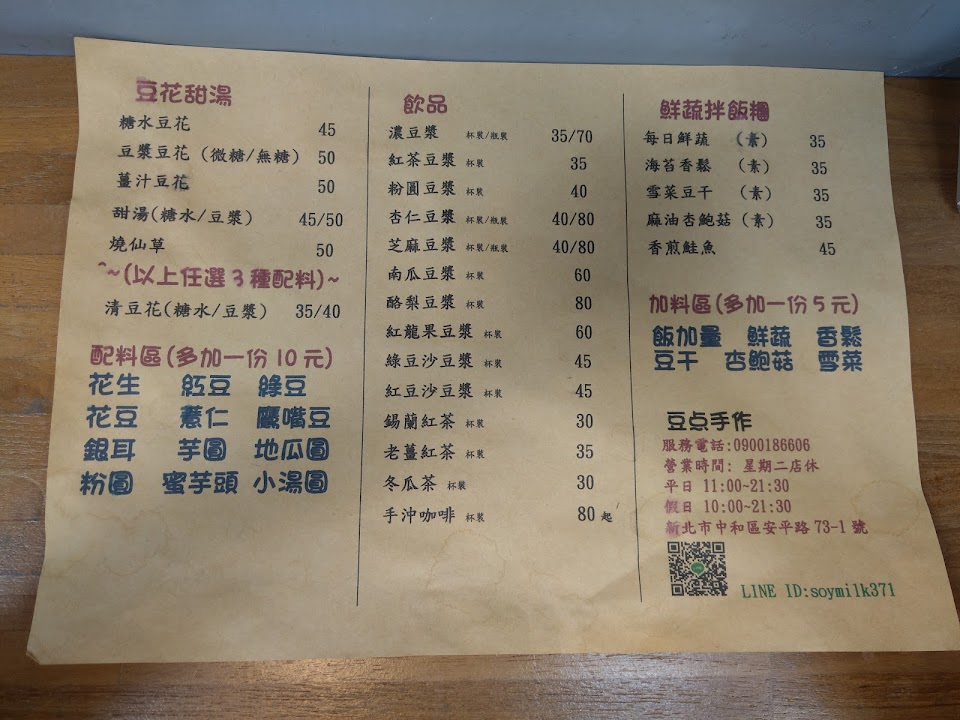 豆花甜湯
糖水豆花 45
豆漿豆花 (微糖/無糖) 50
薑汁豆花 50
甜湯(糖水/豆漿) 45/50
燒仙草 50
~(以上任選3種配料)~
清豆花(糖水/豆漿) 35/40
配料區(多加一份10元)
花生 紅豆 綠豆
花豆 薏仁 鷹嘴豆
銀耳 芋圓 地瓜圓
粉圓 蜜芋頭 小湯圓
飲品
濃豆漿 杯裝/瓶裝 35/70
紅茶豆漿 杯裝 35
粉圓豆漿 杯裝 40
杏仁豆漿 杯裝/瓶裝 40/80
芝麻豆漿 杯裝/瓶裝 40/80
南瓜豆漿 杯裝 60
酪梨豆漿 杯裝 80
紅龍果豆漿 杯裝 60
綠豆沙豆漿 杯裝 45
紅豆沙豆漿 杯裝 45
錫蘭紅茶 杯裝 30
老薑紅茶 杯裝 35
冬瓜茶 杯裝 30
手沖咖啡 杯裝 80起
鮮蔬拌飯糰
每日鮮蔬 (素) 35
海苔香鬆 (素) 35
雪菜豆干 (素) 35
麻油杏鮑菇(素) 35
香煎鮭魚 45
加料區(多加一份5元)
飯加量 鮮蔬 香鬆
豆干 杏鮑菇 雪菜
豆点手作
服務電話:0900186606
營業時間: 星期二店休
平日 11:00~21:30
假日 10:00~21:30
新北市中和區安平路73-1號
LINE ID:soymilk371